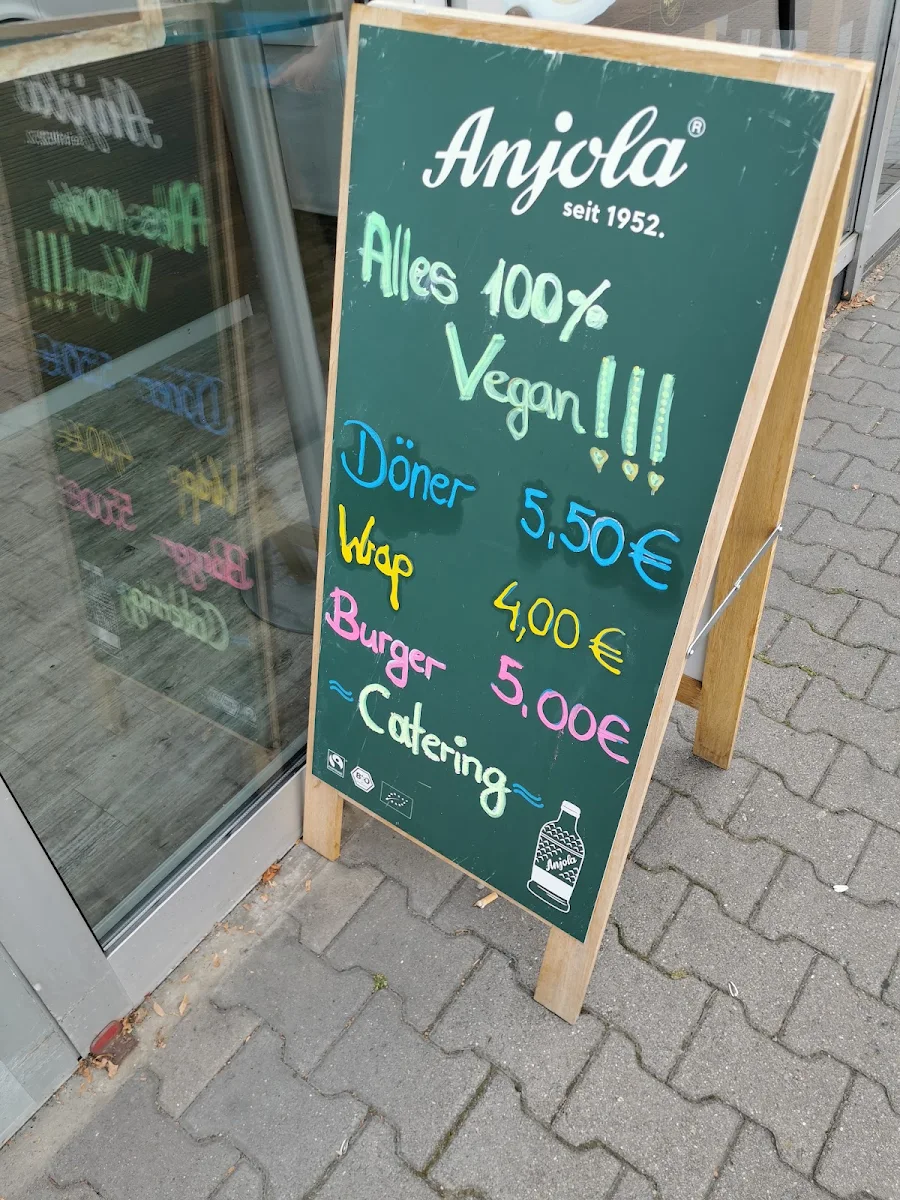 Anjola®
seit 1952.
Alles 100%
Vegan!!!
Döner 5,50€
Wrap 4,00€
Burger 5,00€
≈Catering≈
BIO
Anjola